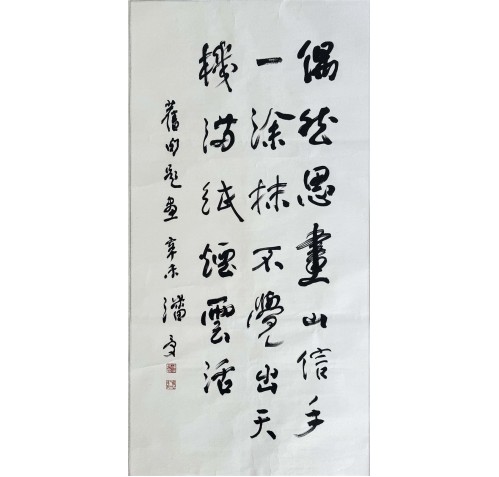 偶然思畫山信手
一塗抹不覺出天
機满紙煙雲活
舊句題畫 辛未 潘受